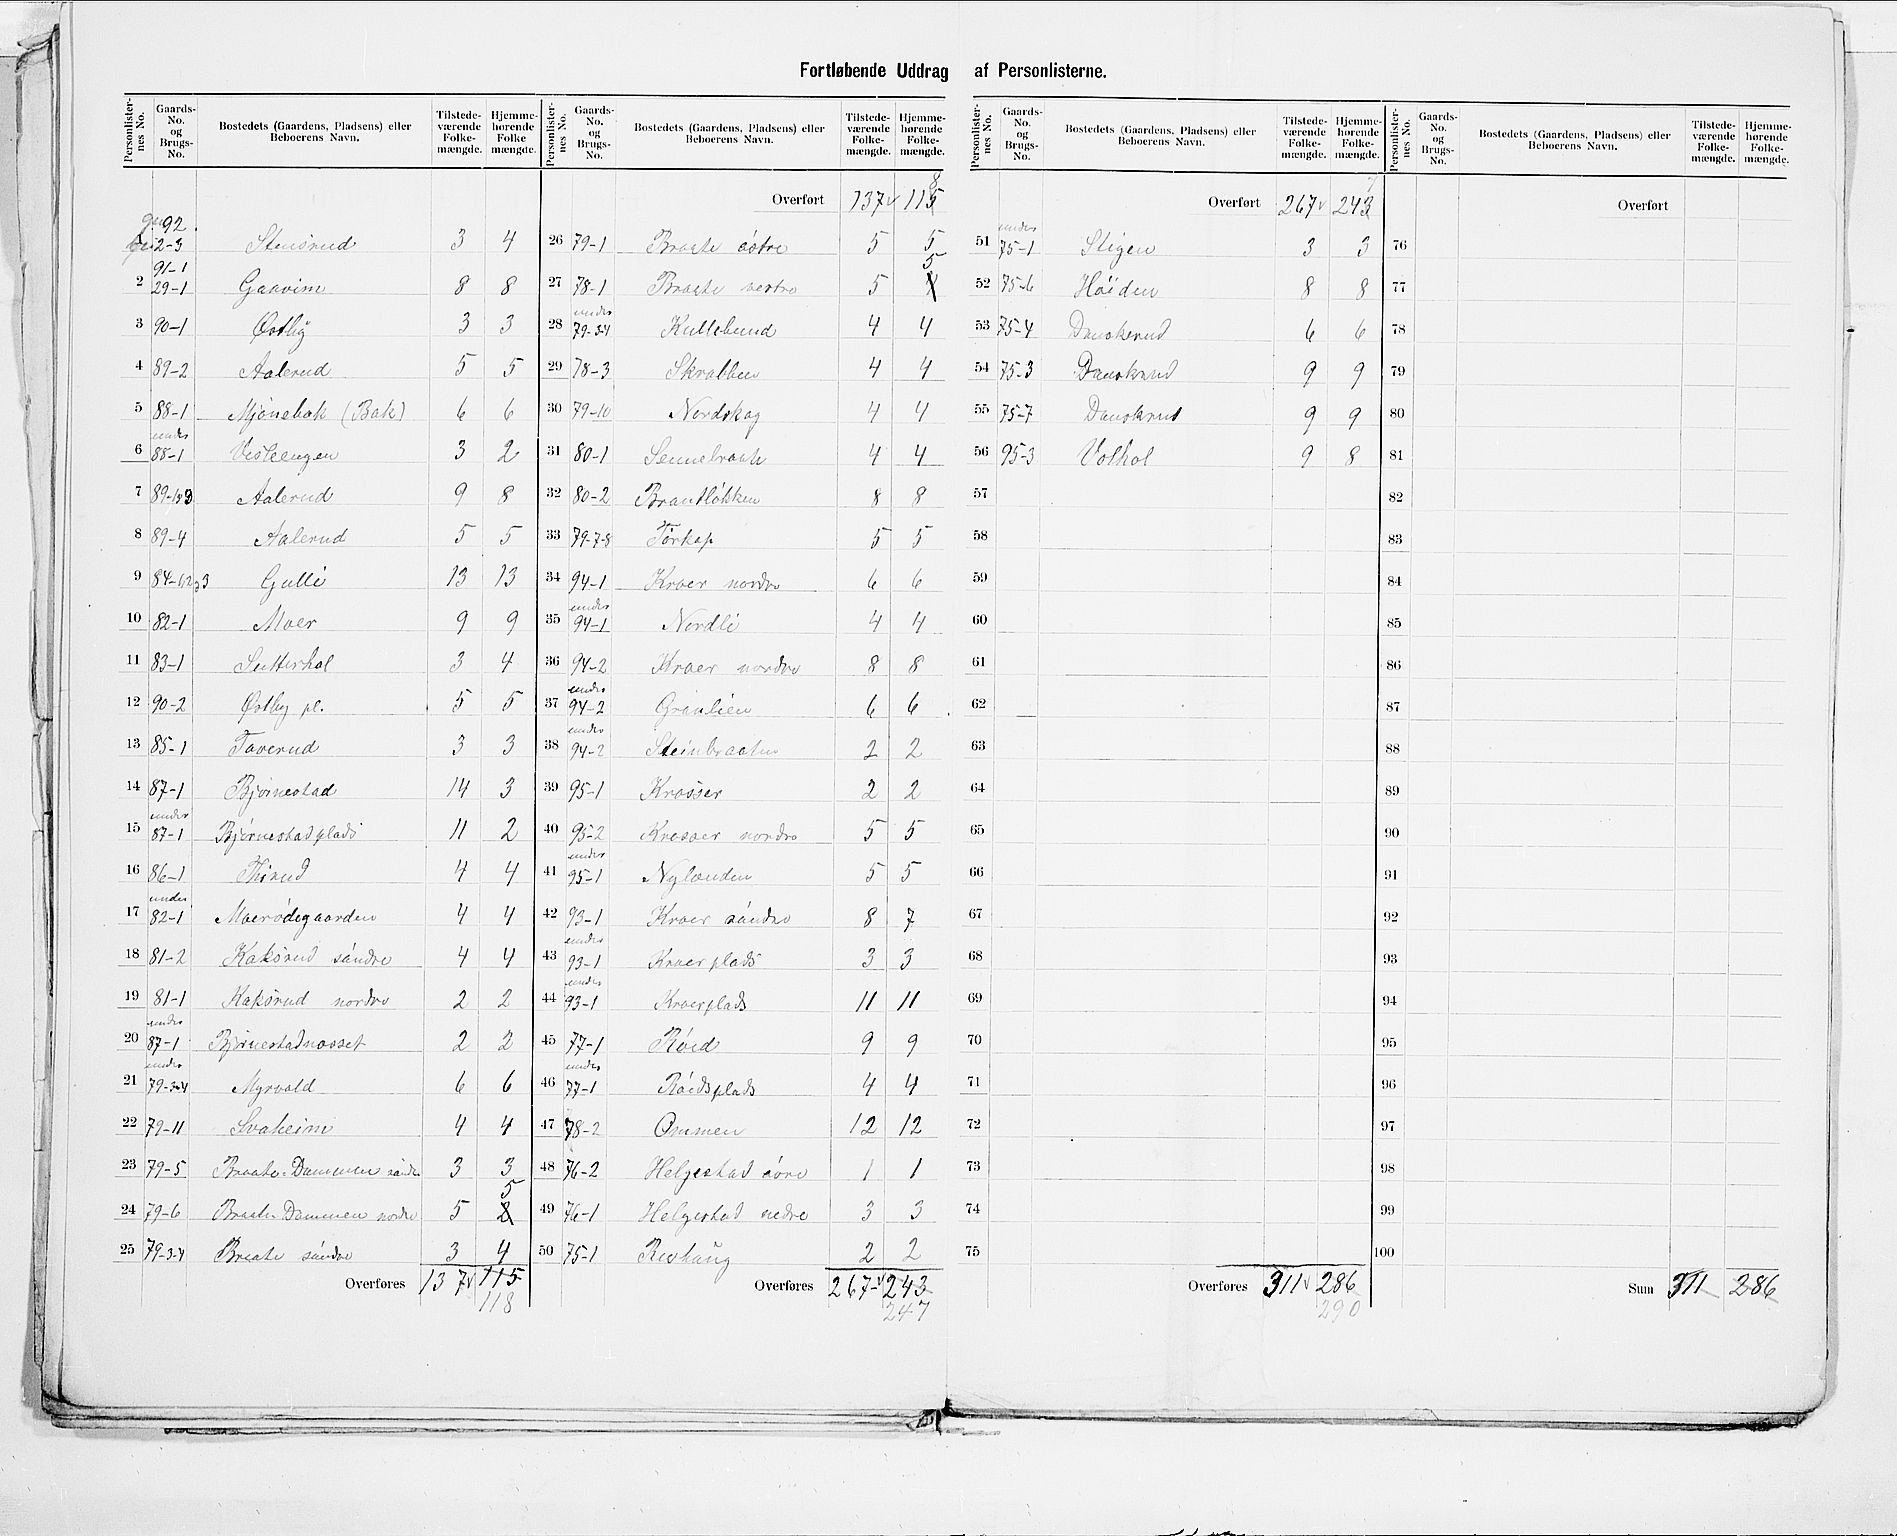 Fortløbende Uddrag af Personlisterne.
Personlister-nes No. Gaards-No. og Brugs-No. Bostedets (Gaardens, Pladsens) eller Beboerens Navn. Tilstede-værende Folke-mængde. Hjemme-hørende Folke mængde.
92
2-3 Stensrud 3 4
91-1
2 29-1 Gaavim 8 8
3 90-1 Østby 3 3
4 89-2 Aalerud 5 5
5 88-1 Mjønebak (Bak) 6 6
under
6 88-1 3 2
7 Aalerud 9 8
8 89-4 Aalerud 5 5
9 Gulli 13 13
10 82-1 Moer 9 9
11 83-1 3 4
12 90-2 Østby pl. 5 5
13 85-1 Taverud 3 3
14 87-1 Bjørnestad 14 3
under
15 87-1 Bjørnestadplads 11 2
16 86-1 4 4
under
17 82-1 Moerødegaarden 4 4
18 81-2 Kaksrud søndre 4 4
19 81-1 Kaksrud nordre 2 2
under
20 87-1 2 2
under
21 79-3-4 Myrvold 6 6
22 79-11 Svaheim 4 4
23 79-5 Braate-Dammen søndre 3 3
5
24 79-6 Braate-Dammen nordre 5 2
25 79-3-4 Braate søndre 3 4
Overføres 137 115
118
Personlister-nes No. Gaards-No. og Brugs-No. Bostedets (Gaardens, Pladsens) eller Beboerens Navn. Tilstede-værende Folke-mængde. Hjemme-hørende Folke-mængde.
8
Overført 137 115
26 79-1 Braate østre 5 5
5
27 78-1 Braate vestre 5 4
under
28 79-3-4 Kullebund 4 4
29 78-3 Skrabben 4 4
30 79-10 Nordskog 4 4
31 80-1 4 4
32 80-2 Brautløkken 8 8
33 79-7-8 Torkop 5 5
34 94-1 Kroer nordre 6 6
under
35 94-1 Nordli 4 4
36 94-2 Kroer nordre 8 8
under
37 94-2 Granlien 6 6
under
38 94-2 Steinbraaten 2 2
39 95-1 Krosser 2 2
40 95-2 Krosser nordre 5 5
under
41 95-1 Nylænden 5 5
42 93-1 Kroer søndre 8 7
under
43 93-1 Kroerplads 3 3
under
44 93-1 Kroerplads 11 11
45 77-1 Røed 9 9
under
46 77-1 Røedsplads 4 4
47 78-2 Ommen 12 12
48 76-2 Helgestad øvre 1 1
49 76-1 Helgestad nedre 3 3
50 75-1 Revhaug 2 2
Overføres 267 243
247
Personlister-nes No. Gaards-No. og Brugs-No. Bostedets (Gaardens, Pladsens) eller Beboerens Navn. Tilstede-værende Folke-mængde. Hjemme-hørende Folke-mængde.
7
Overført 267 243
under
51 75-1 Stigen 3 3
52 75-6 Høiden 8 8
53 75-4 Danskerud 6 6
54 75-3 Danskrud 9 9
55 75-7 Danskrud 9 9
56 95-3 Volhol 9 8
57
58
59
60
61
62
63
64
65
66
67
68
69
70
71
72
73
74
75
Overføres 311 286
290
Personlister-nes No. Gaards-No. og Brugs-No. Bostedets (Gaardens, Pladsens) eller Beboerens Navn. Tilstede-værende Folke-mængde. Hjemme-hørende Folke-mængde.
Overført
76
77
78
79
80
81
82
83
84
85
86
87
88
89
90
91
92
93
94
95
96
97
98
99
100
Sum 311 286